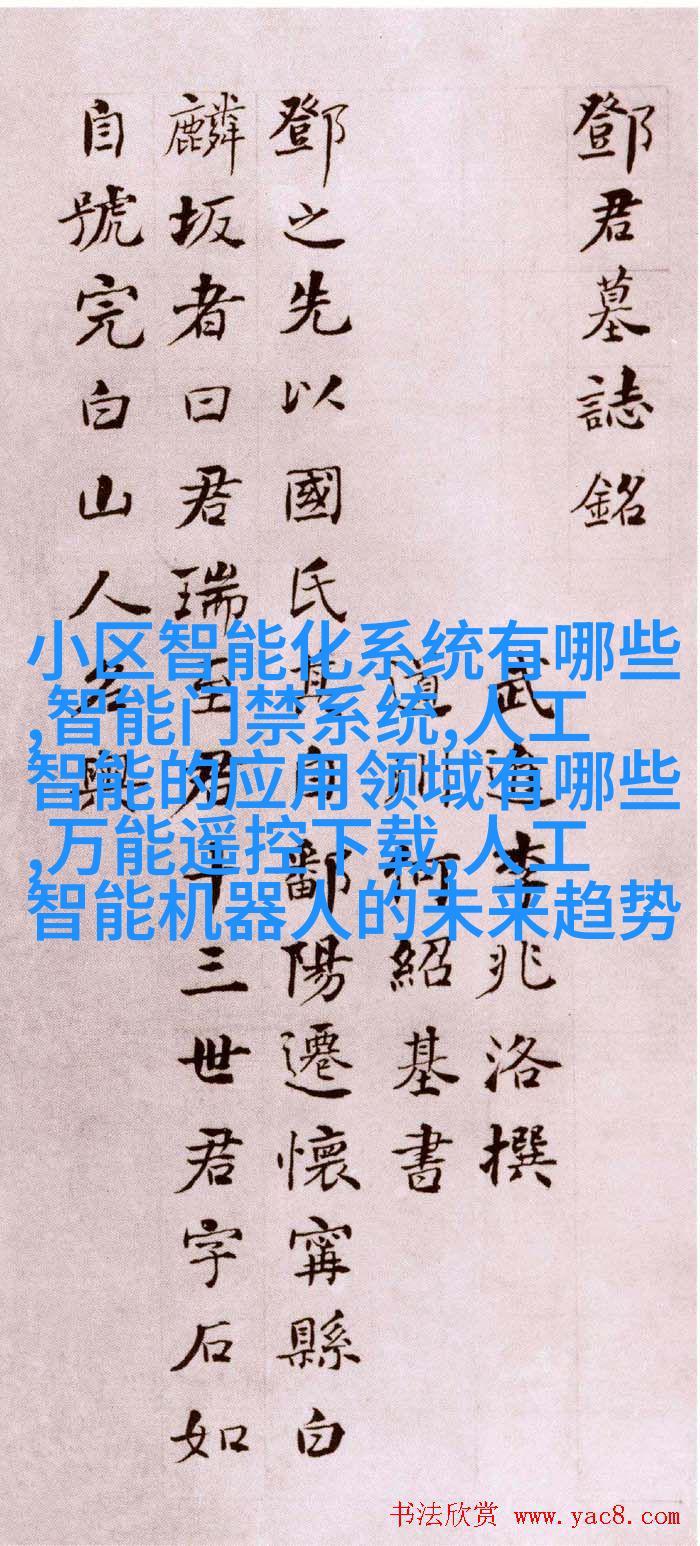 鄧君墓誌銘
武進李兆洛撰
道州何紹基書
鄧之先以國氏其自鄱陽遷懷甯縣白
麟坂者曰君瑞至君十三世君字石如
自號完白山人名與
小区智能化系统有哪些
,智能门禁系统,人工
智能的应用领域有哪些
,万能遥控下载,人工
智能机器人的未来趋势
书法欣赏 www.yac8.com